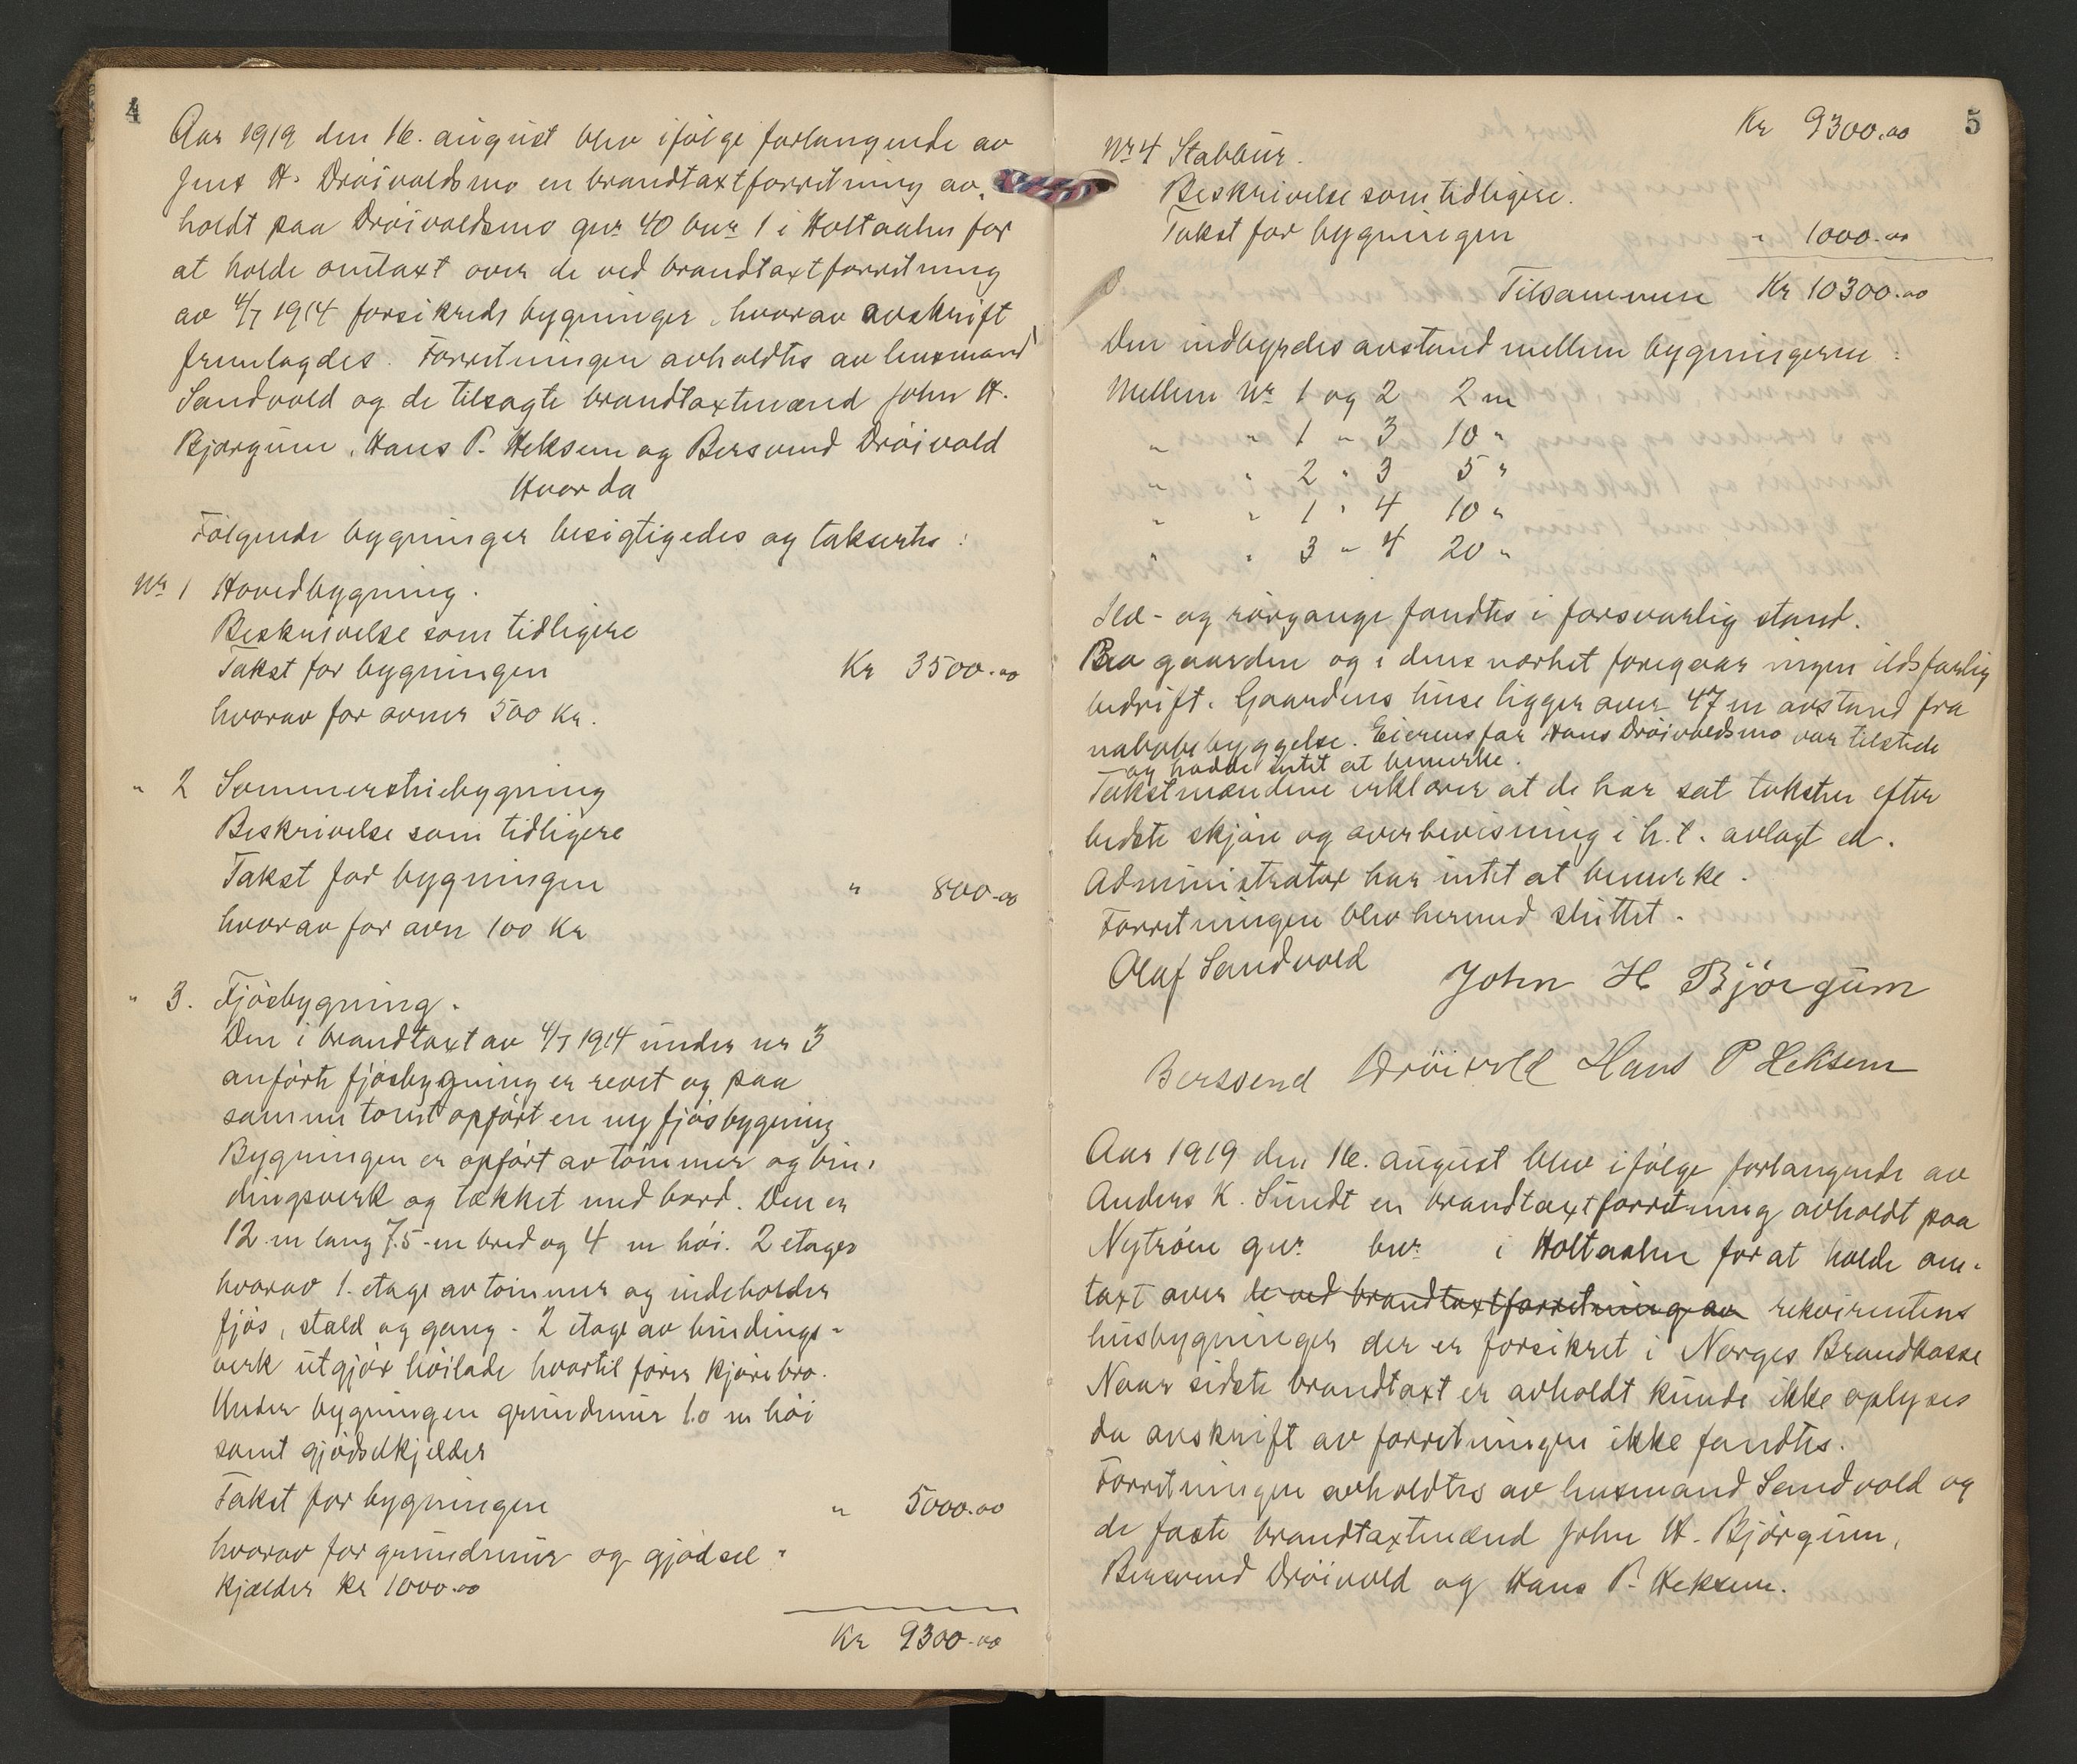 4
Aar 1919 den 16. august blev ifølge forlangende av
Jens H. Drøivoldsmo en brandtaxtforretning av-
holdt paa Drøivoldsmo gnr 40 bnr 1 i Holtaalen for
at holde omtaxt over de ved brandtaxtforretning
av 4/7 1914 forsikrede bygninger, hvorav avskrift
fremlagdes. Forretningen avholdtes av lensmand
Sandvold og de tilsagte brandtaxtmænd John H.
Bjørgum, Hans P. Heksem og Bersvend Drøivold
Hvor da
Følgende bygninger besigtigedes og taksertes:
Nr 1 Hovedbygning.
Beskrivelse som tidligere
Takst for bygningen Kr 3500.00
hvorav for ovner 500 Kr.
" 2 Sommerstuebygning
Beskrivelse som tidligere
Takst for bygningen " 800.00
hvorav for ovn 100 Kr
" 3. Fjøsbygning.
Den i brandtaxt av 4/7 1914 under nr 3
anførte fjøsbygning er revet og paa
samme tomt opført en ny fjøsbygning
Bygningen er opført av tømmer og bin-
dingsverk og tækket med bord. Den er
12 m lang 7.5 m bred og 4 m høi. 2 etager
hvorav 1. etage av tømmer og indeholder
fjøs, stald og gang. 2 etage av bindings-
verk utgjør høilade hvortil fører kjørebro.
Under bygningen grundmur 1.0 m høi
samt gjødselkjelder
Takst for bygningen " 5000.00
hvorav for grundmur og gjødsel-
kjælder kr 1000.00
Kr 9300.00
5
Kr 9300.00
Nr 4 Stabbur.
Beskrivelse som tidligere.
Takst for bygningen " 1000.00
Tilsammen Kr 10300.00
Den indbyrdes avstand mellem bygningerne:
Mellem Nr 1 og 2 2 m
" " 1 " 3 10 "
" " 2 " 3 5 "
" " 1 " 4 10 "
" " 3 " 4 20 "
Ild- og rørgange fandtes i forsvarlig stand.
Paa gaarden og i dens nærhet foregaar ingen ildsfarlig
bedrift. Gaardens huse ligger over 47 m avstand fra
nabobebyggelse. Eierens far Hans Drøivoldsmo var tilstede
og hadde intet at bemerke.
Takstmændene erklærer at de har sat taksten efter
bedste skjøn og overbevisning i h.t. avlagt ed.
Administrator har intet at bemerke.
Forretningen blev hermed sluttet.
Olaf Sandvold John H Bjørgum
Bersvend Drøivold Hans P Heksem
Aar 1919 den 16. august blev ifølge forlangende av
Anders K. Sundt en brandtaxtforretning avholdt paa
Nytrøen gnr. bnr. i Holtaalen for at holde om-
taxt over de ved brandtaxtforretning av rekvirentens
husbygninger der er forsikret i Norges Brandkasse
Naar sidste brandtaxt er avholdt kunde ikke oplyses
da avskrift av forretningen ikke fandtes.
Forretningen avholdtes av lensmand Sandvold og
de faste brandtaxtmænd John H. Bjørgum,
Bersvend Drøivold og Hans P. Heksem.